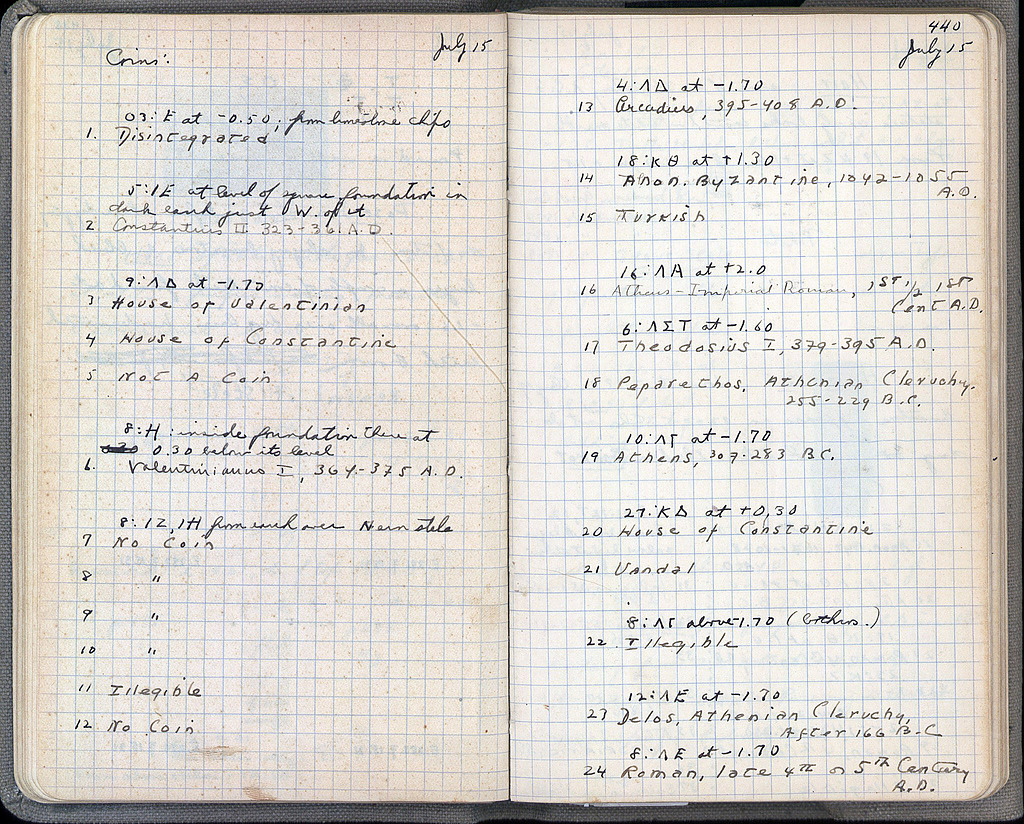 July 15
Coins:
03:E at -0.50; from limestone chips
1. Disintegrated
5:IE at level of square foundation in
dark earth just W. of it
2 Constantius II 323-361 A.D.
9:ΛΔ at -1.70
3 House of Valentinian
4 House of Constantine
5 Not A Coin
8:H :inside foundation there at
0.30 below its level
6. Valentinianus I, 364-375 A.D.
8:12, IH from earth over stele
7 No Coin
8 "
9 "
10 "
11 Illegible
12 No Coin
440
July 15
4:ΛΔ at -1.70
13 Arcadius, 395-408 A.D.
18:ΚΘ at +1.30
14 Anon. Byzantine, 1042-1055
A.D.
15 Turkish
16:ΛΑ at +2.0
16 Athens-Imperial Roman, 1st 1/2, 1st
Cent A.D.
6:ΛΣΤ at -1.60
17 Theodosius I, 379-395 A.D.
18 Peparethos, Athenian Cleruchy,
255-229 B.C.
10:ΛΓ at -1.70
19 Athens, 307-283 BC.
27:ΚΔ at +0,30
20 House of Constantine
21 Vandal
8:ΛΓ above -1.70
22 Illegible
12:ΛΕ at -1.70
23 Delos, Athenian Cleruchy,
After 166 B.C
8:ΛΕ at -1.70
24 Roman, late 4th or 5th Century
A.D.